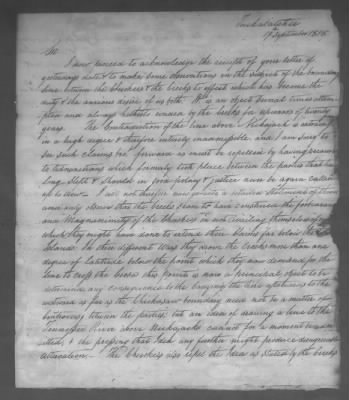 Tuckabatchee
19th September 1815
Sir
I now proceed to acknowledge the receipt of your letter of
yesterdays date & to make some observations on the subject of the boundary
line between the Cherokees & the Creeks to effect which has become the
duty & the anxious desire of us both. It is an object several times attem-
pted and always hitherto evaded by the Creeks for upwards of twenty
years. The Continuation of the line above is entirely
in a high degree & therefore entirely inadmissable and I am sorry to
see such claims bro't forward as must be repelled by having recourse
to transactions which formerly took place between the parties that have
long slept & should in good policy & justice never be again called
to view. I will not therefore now go into a statement of them
and only observe that the Creeks seem to have construed the forbearance
and Magnanimity of the Cherokees in not availing themselves of
which they might have done to extend their Claims far below the
Islands. In their different Wars they drove the Creeks more than one
degree of Latitude below the point which they now demand for the
line to cross the Coosa this point is now a principal object to be
determined any consequence to the carrying the line afterwards to the
westward as far as the Chickasaw boundary need not be a matter of
controversy between the parties but an idea of drawing a line to the
Tennessee River above cannot for a moment be admit-
ted, & the pressing that Idea any further might produce disagreeable
altercation. The Cherokees also repel the Idea as stated by the Creeks